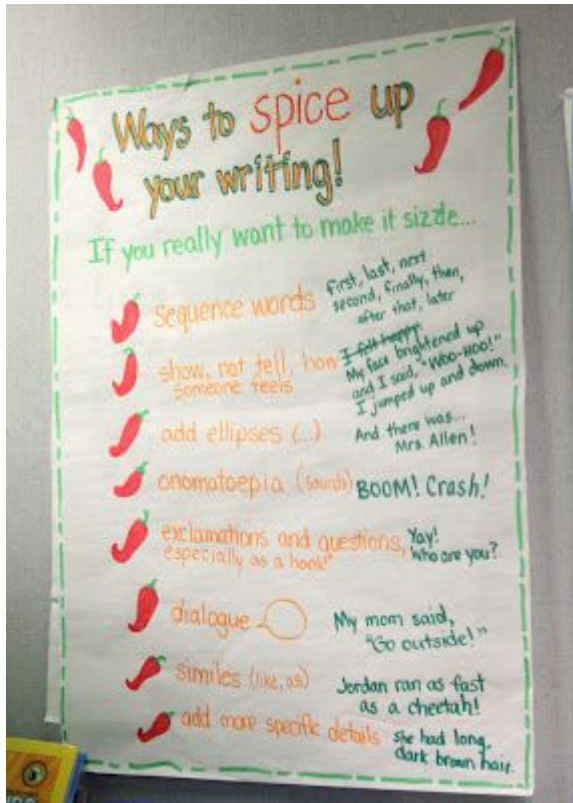 Ways to spice up
your writing!
If you really want to make it sizzle...
Sequence words
first, last, next
second, finally, then,
after that, later
show, not tell, how
someone feels
I felt happy.
My face brightened up
and I said, "Woo-Hoo!"
I jumped up and down.
add ellipses (...)
And there was...
Mrs. Allen!
onomatoepia (sounds)
BOOM! Crash!
exclamations and questions,
especially as a hook!
Yay!
Who are you?
dialogue
My mom said,
"Go outside!"
similes (like, as)
Jordan ran as fast
as a cheetah!
add more specific details
she had long,
dark brown hair.